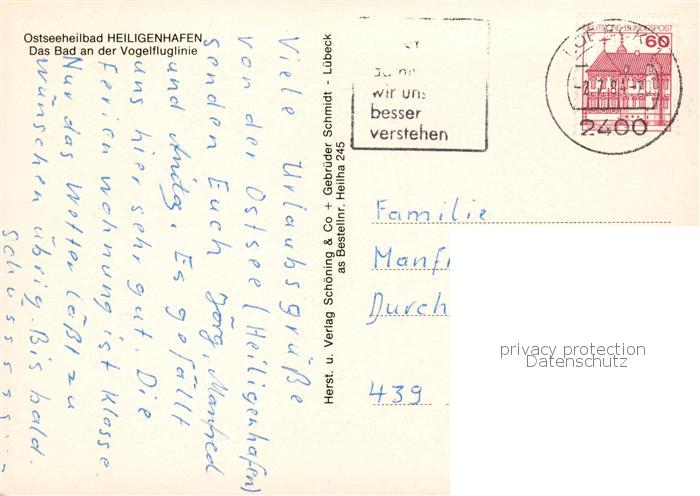 Ostseeheilbad HEILIGENHAFEN
Das Bad an der Vogelfluglinie
Viele Urlaubsgrüße
von der Ostsee (Heiligenhafen)
senden Euch Jörg, Manfred
und Anita. Es gefällt
uns hier sehr gut. Die
Ferienwohnung ist Klasse.
Nur das Wetter läßt zu
wünschen übrig. Bis bald.
Schüsssss...
Herst. u. Verlag Schöning & Co + Gebrüder Schmidt - Lübeck
as Bestellnr. Heilha 245
wir uns
besser
verstehen
DEUTSCHE BUNDESPOST
60
2400
Familie
Manf
Durch
439
privacy protection
Datenschutz